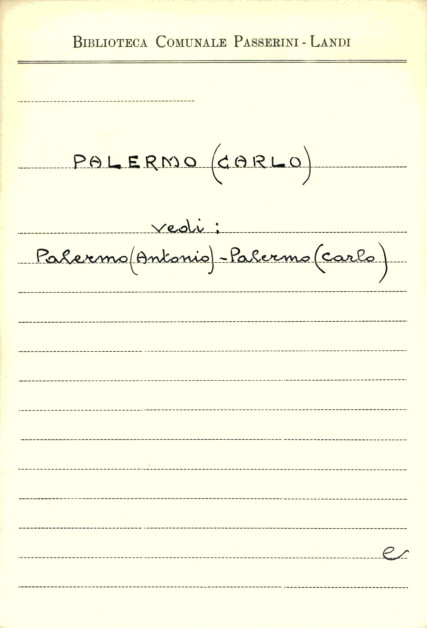 BIBLIOTECA COMUNALE PASSERINI - LANDI
PALERMO (CARLO)
vedi :
Palermo (Antonio) - Palermo (Carlo)
e